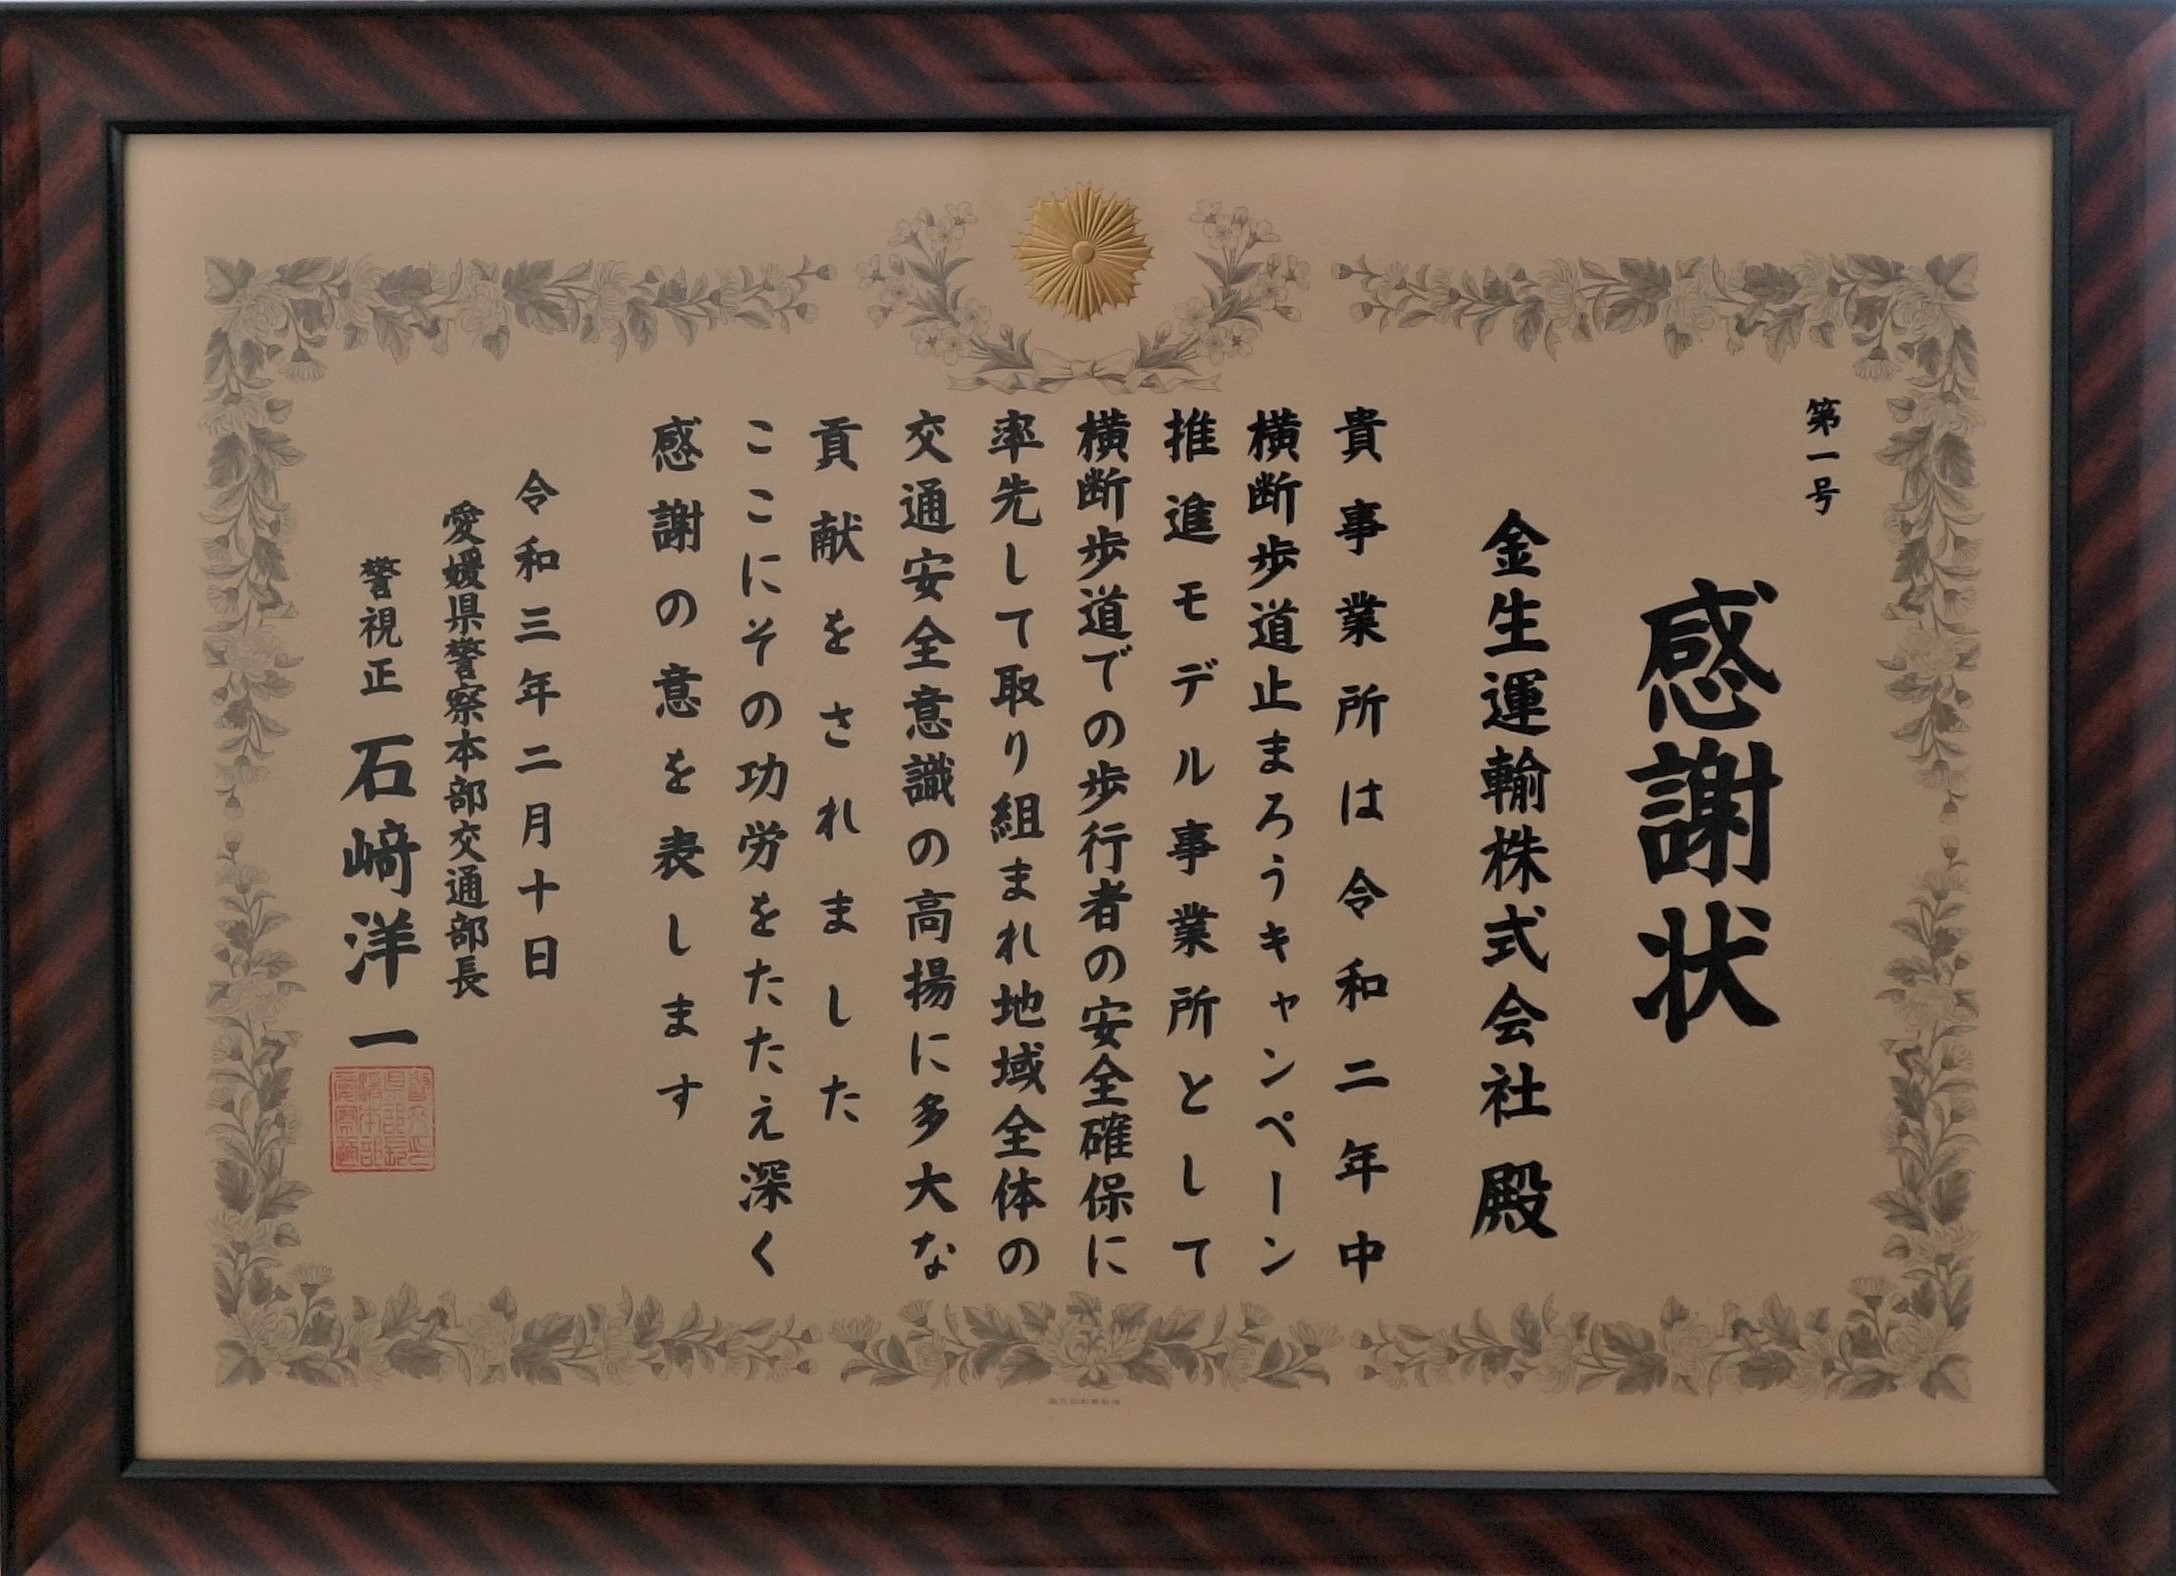 第一号
感謝状
金生運輸株式会社 殿
貴事業所は令和二年中
横断歩道止まろうキャンペーン
推進モデル事業所として
横断歩道での歩行者の安全確保に
率先して取り組まれ地域全体の
交通安全意識の高揚に多大な
貢献をされました
ここにその功労をたたえ深く
感謝の意を表します
令和三年二月十日
愛媛県警察本部交通部長
警視正 石﨑洋一